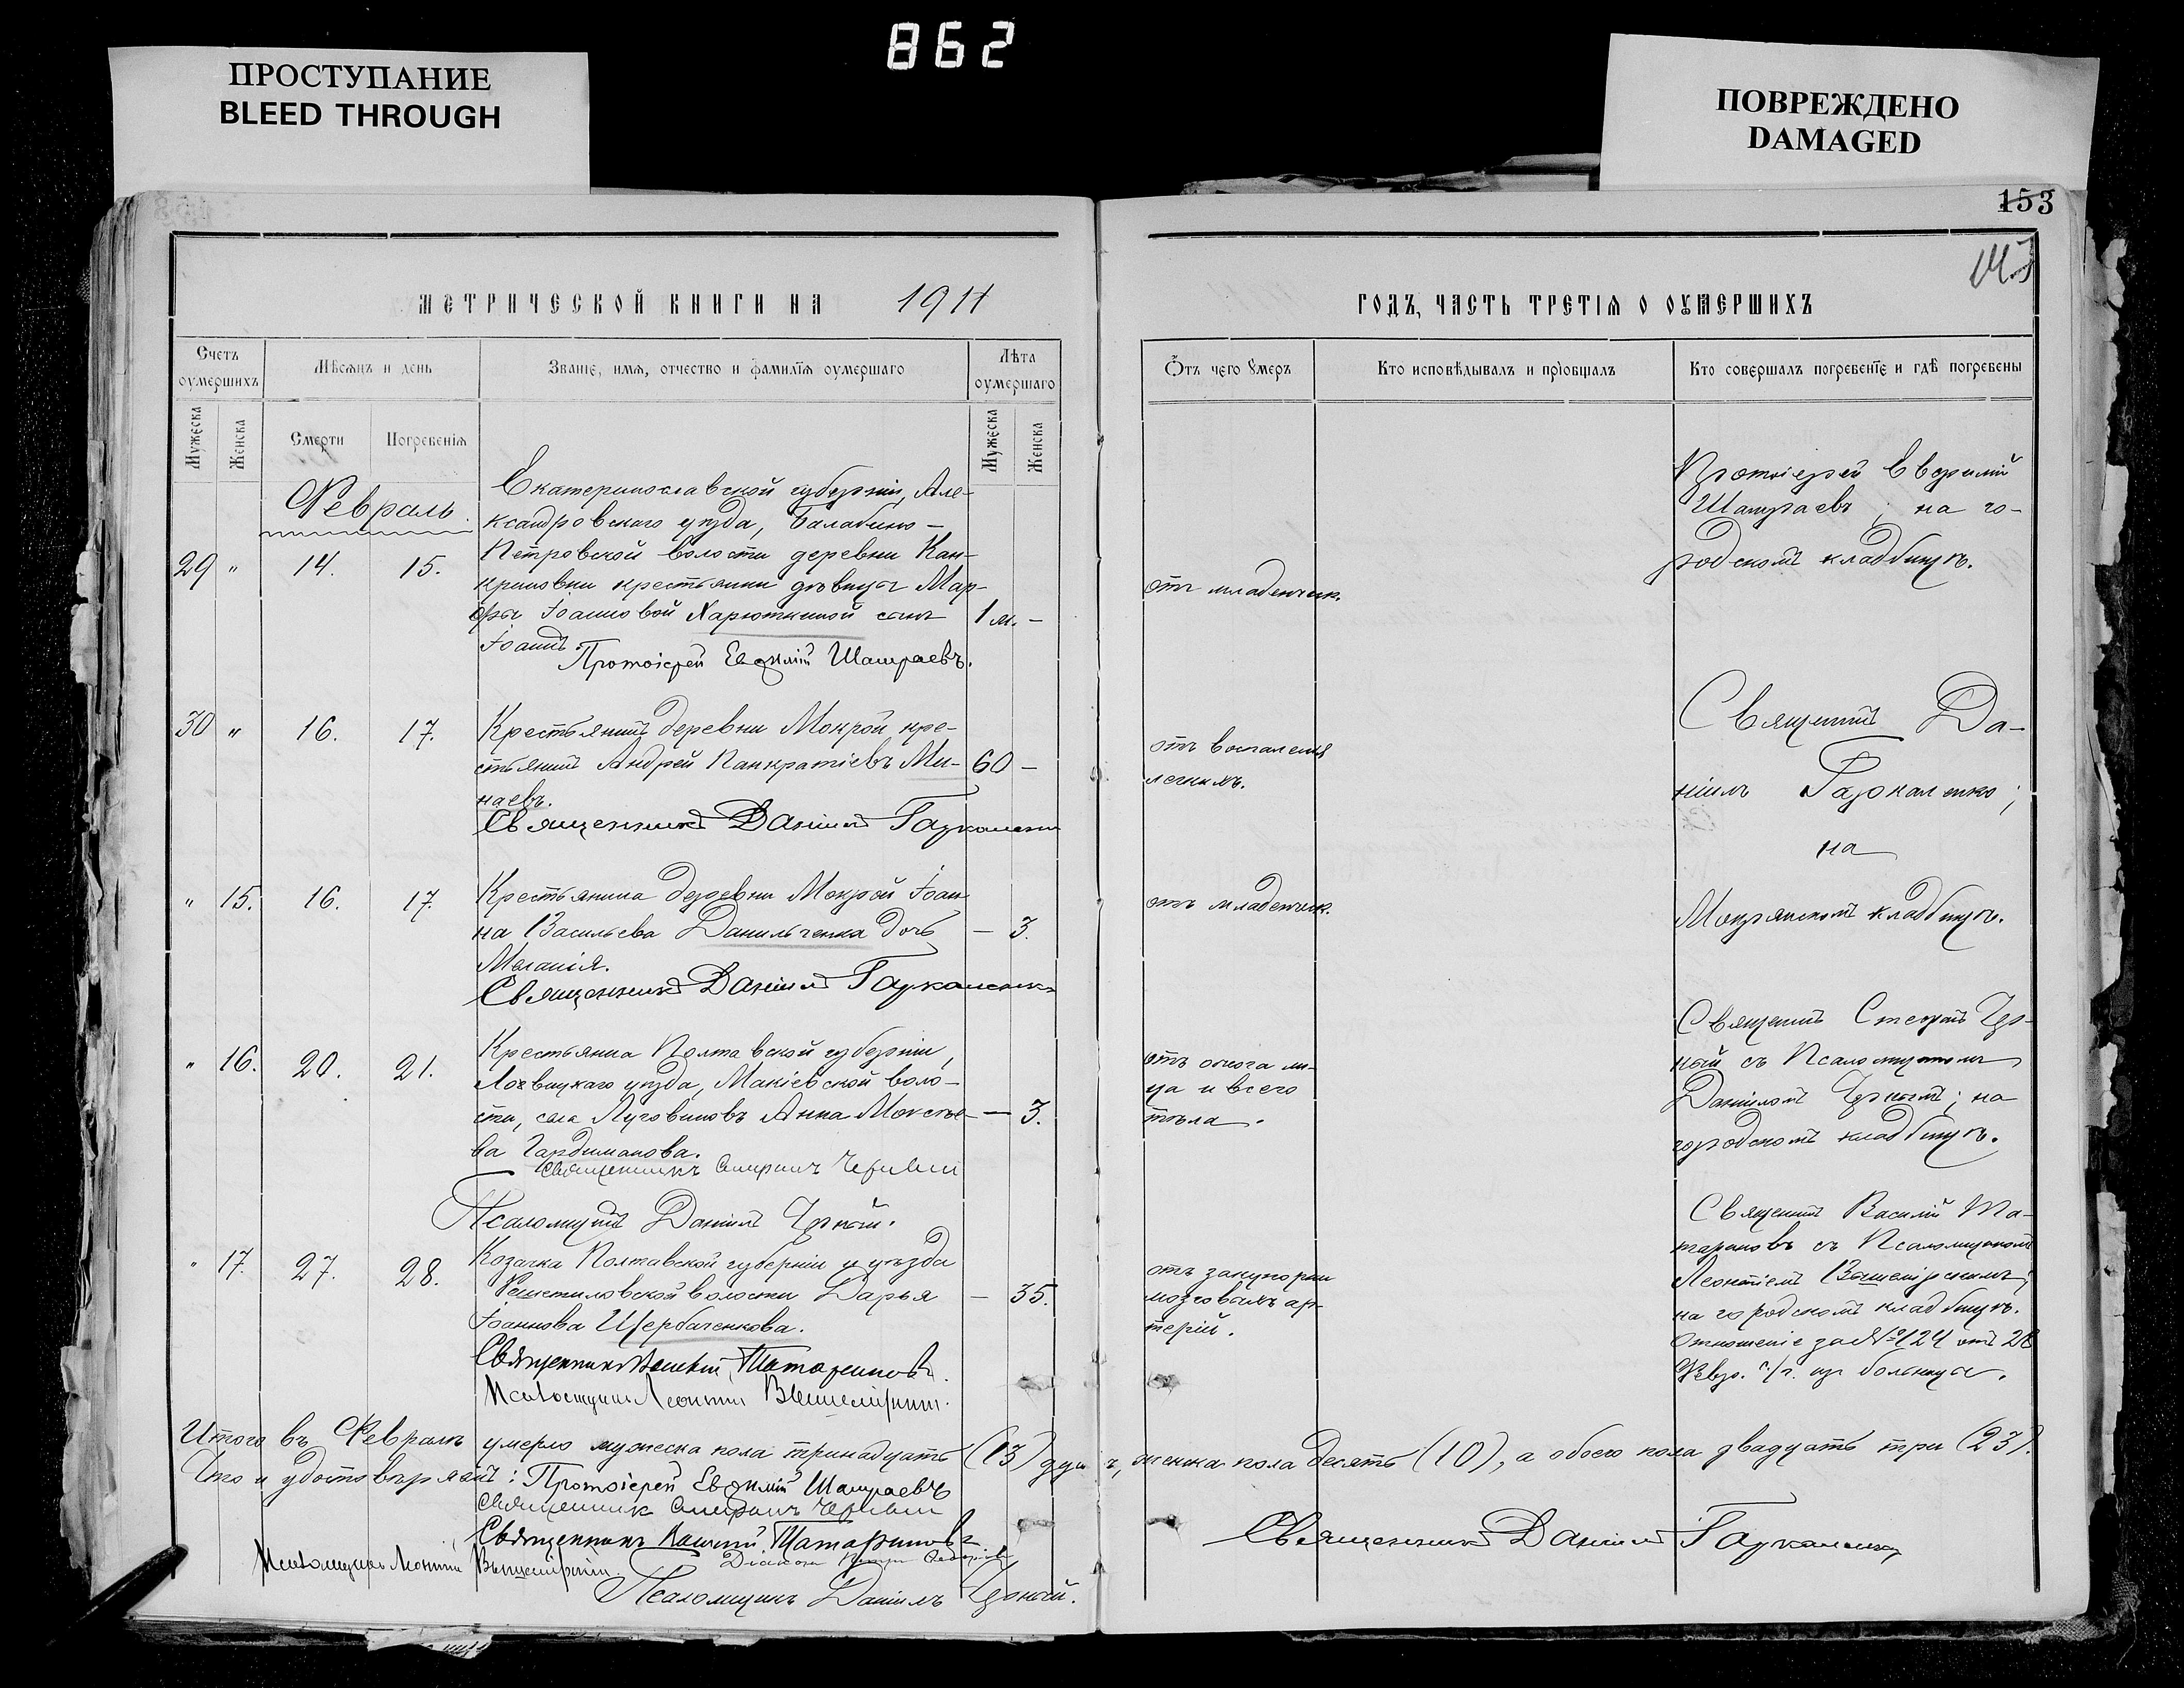 862
ПРОСТУПАНИЕ
BLEED THROUGH
ПОВРЕЖДЕНО
DAMAGED
153
МЕТРИЧЕСКОЙ КНИГИ НА 1911
ГОДЪ, ЧАСТЬ ТРЕТІЯ О ОУМЕРШИХЪ
Счетъ оумершихъ
Мѣсяцъ и день
Званіе, имя, отчество и фамилія оумершаго
Лѣта оумершаго
Мужеска
Женска
Смерти
Погребенія
Мужеска
Женска
Отъ чего умеръ
Кто исповѣдывалъ и пріобщалъ
Кто совершалъ погребеніе и гдѣ погребены
Февраль.
Екатеринославской губерніи, Але-
ксандровскаго уѣзда, Балабино-
29 " 14. 15. Петровской волости деревни Кан-
криновки крестьянки дѣвицы Мар-
фы Іоанновой Харюткиной сынъ 1 м. -
Іоаннъ.
Протоіерей Евѳимій Шамраевъ.
отъ младенческ.
Протоіерей Евѳимій
Шамраевъ; на го-
родскомъ кладбищѣ.
30 " 16. 17. Крестьянинъ деревни Мокрой, кре-
стьянинъ Андрей Панкратіевъ Ми- 60 -
наевъ.
Священникъ Даніилъ Гаркаленко
отъ воспаленія
легкихъ.
Священникъ Да-
ніилъ Гаркаленко;
на
Мокрянскомъ кладбищѣ.
" 15. 16. 17. Крестьянина деревни Мокрой Іоан-
на Васильева Данильченка дочь - 3.
Меланія.
Священникъ Даніилъ Гаркаленко
отъ младенческ.
" 16. 20. 21. Крестьянка Полтавской губерніи,
Лохвицкаго уѣзда, Макіевской воло-
сти, села Луговиковъ Анна Моксеье- - 3.
ва Гардиманова.
Священникъ Стефанъ Черный
Псаломщикъ Даніилъ Черный.
отъ ожога ли-
ца и всего
тѣла.
Священникъ Стефанъ Чер-
ный съ Псаломщикомъ
Даніиломъ Чернымъ; на
городскомъ кладбищѣ.
" 17. 27. 28. Козачка Полтавской губерніи и уѣзда
Решетиловской волости Дарья - 35.
Іоаннова Щербаченкова.
Священникъ Василій Татариновъ.
Псаломщикъ Леонтій Вышемірскій.
отъ закупорки
мозговыхъ ар-
терій.
Священникъ Василій Та-
тариновъ съ Псаломщикомъ
Леонтіемъ Вышемірскимъ;
на городскомъ кладбищѣ.
Отношеніе за № 124 отъ 28
Февр. с/г. изъ больницы.
Итого въ Февралѣ умерло мужеска пола тринадцать (13) душъ, женска пола десять (10), а обоего пола двадцать три (23).
Что и удостовѣряемъ: Протоіерей Евѳимій Шамраевъ
Священникъ Стефанъ Черный
Священникъ Василій Татариновъ
Священникъ Даніилъ Гаркаленко
Діаконъ
Псаломщикъ Леонтій Вышемірскій.
Псаломщикъ Даніилъ Черный.